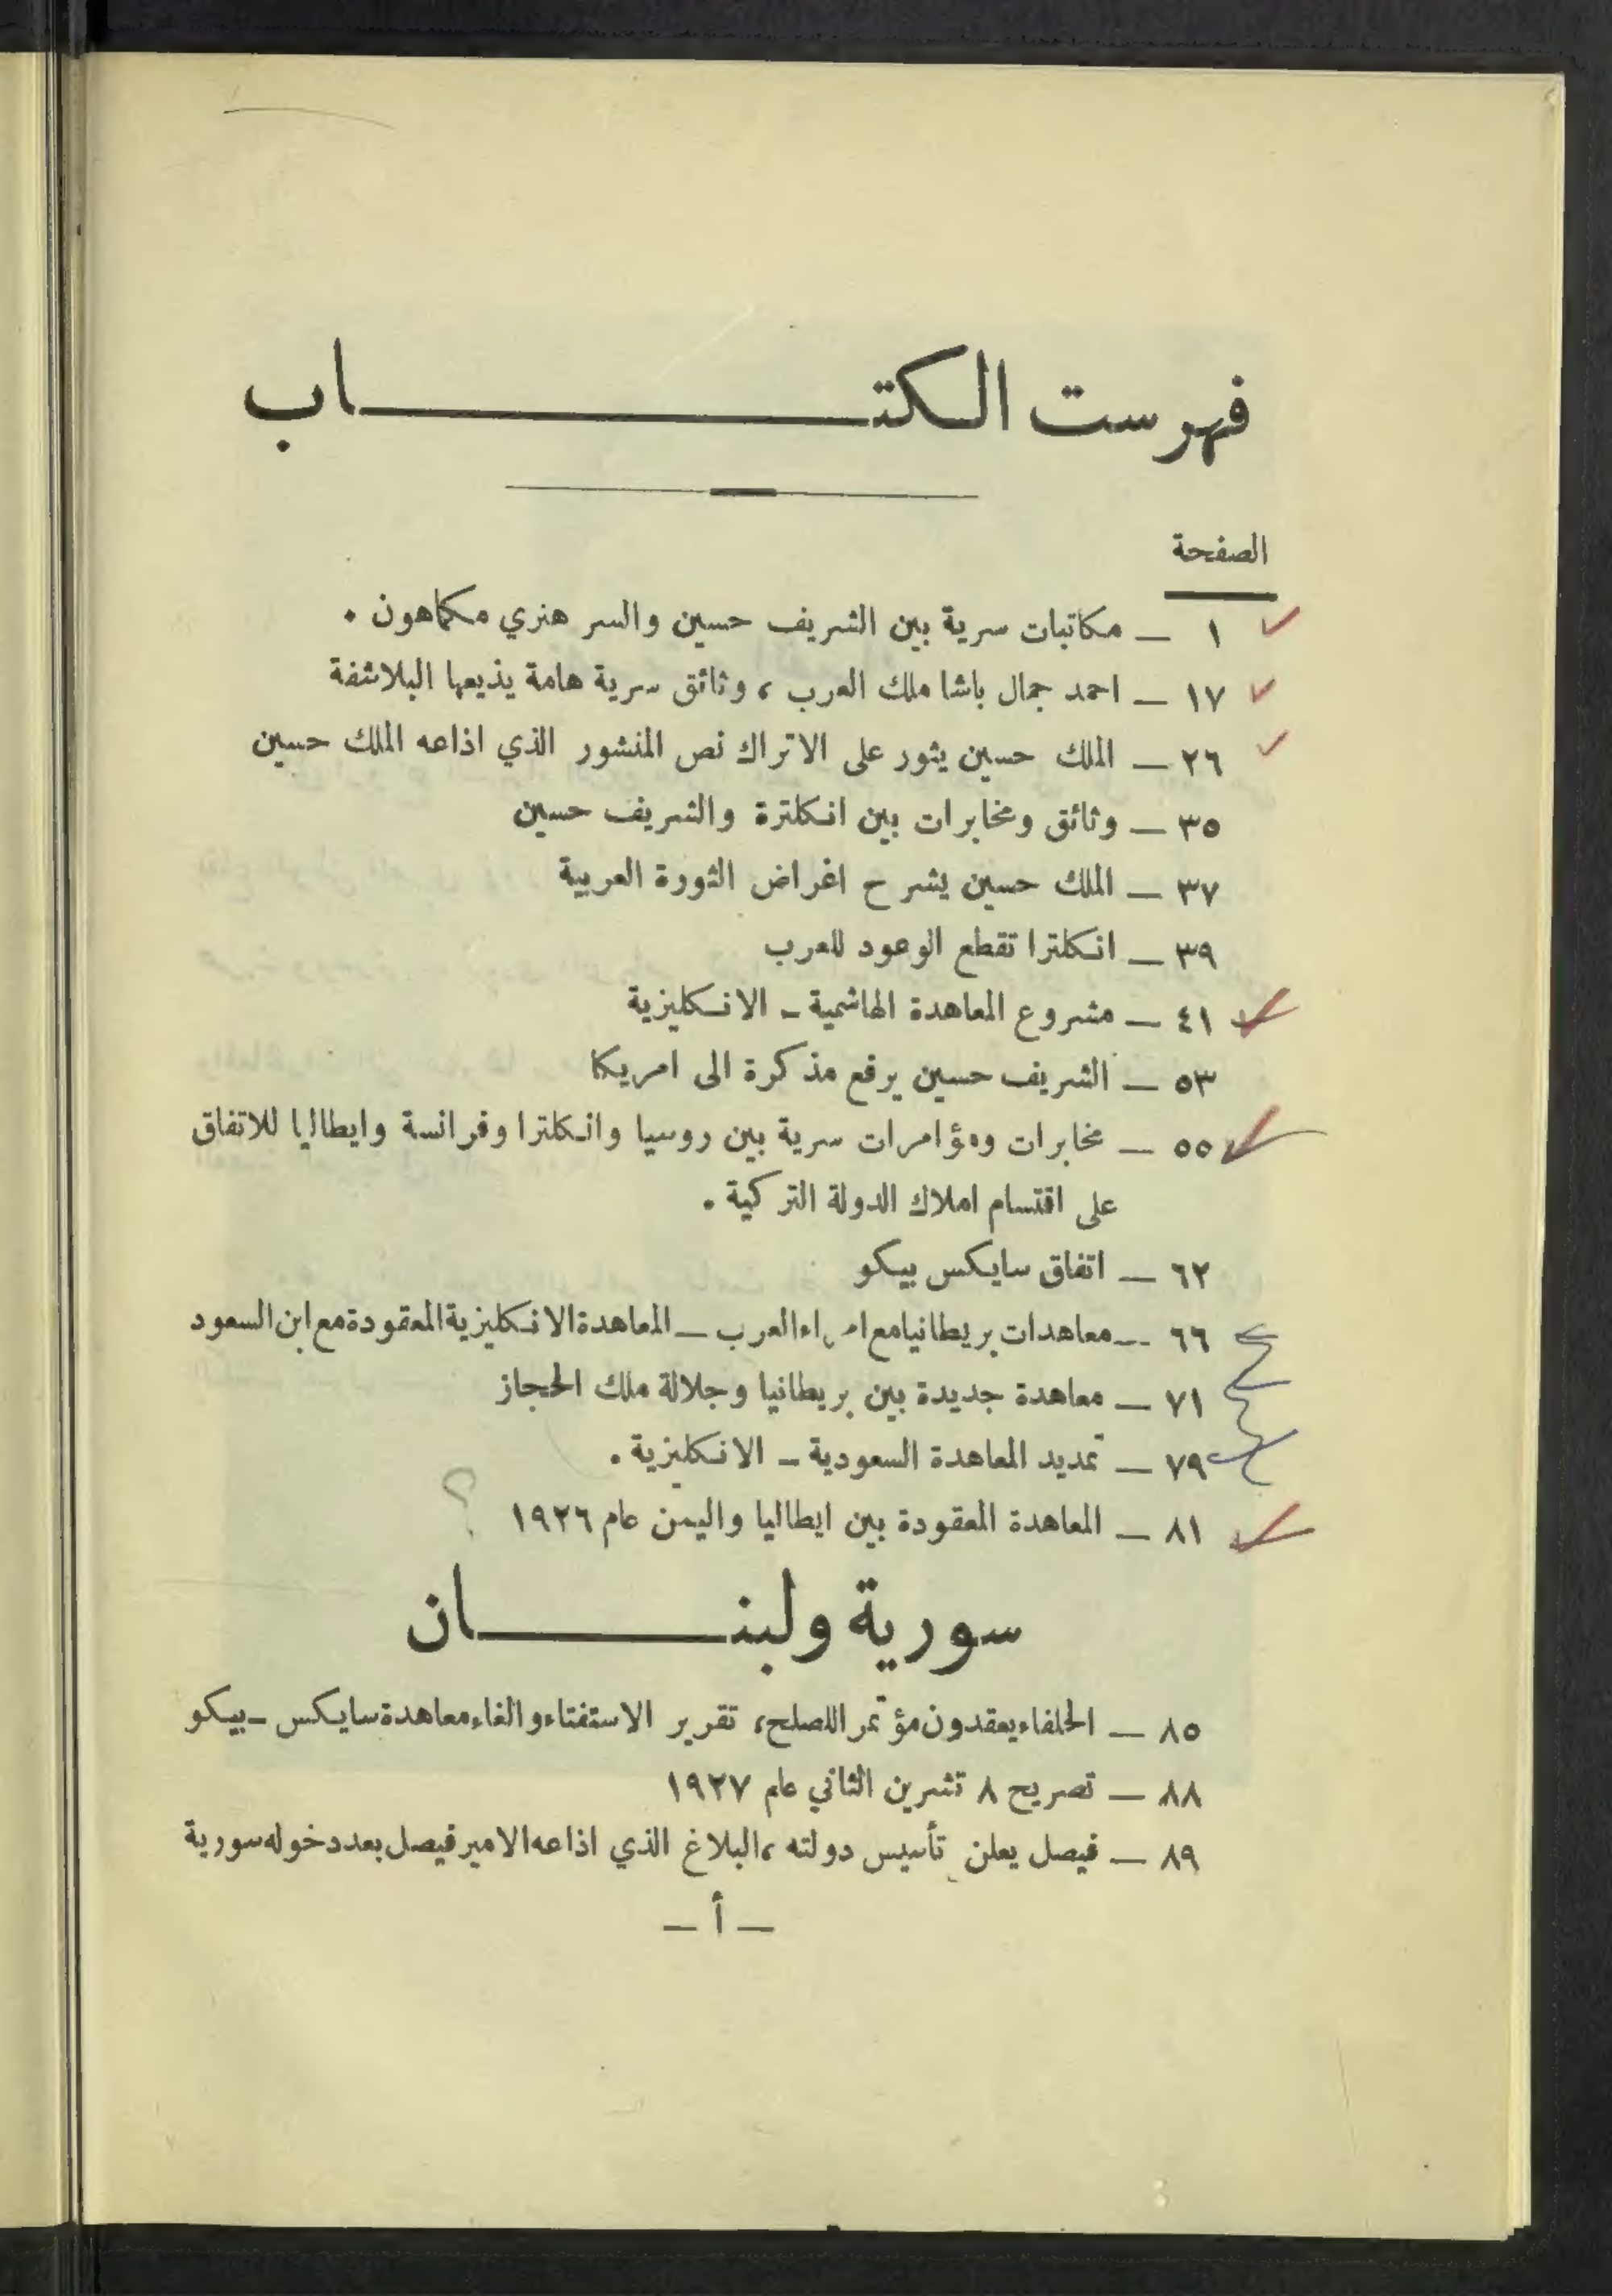 فهرست الكتاب
الصفحة
١ — مكاتبات سرية بين الشريف حسين والسر هنري مكماهون .
١٧ — احمد جمال باشا ملك العرب ، وثائق سرية هامة يذيعها البلاشفة
٢٦ — الملك حسين يثور على الاتراك نص المنشور الذي اذاعه الملك حسين
٣٥ — وثائق ومخابرات بين انكلترة والشريف حسين
٣٧ — الملك حسين يشرح اغراض الثورة العربية
٣٩ — انكلترا تقطع الوعود للعرب
٤١ — مشروع المعاهدة الهاشمية - الانكليزية
٥٣ — الشريف حسين يرفع مذكرة الى امريكا
٥٥ — مخابرات ومؤامرات سرية بين روسيا وانكلترا وفرانسة وايطاليا للاتفاق
على اقتسام املاك الدولة التركية .
٦٢ — اتفاق سايكس بيكو
٦٦ — معاهدات بريطانيا مع امراء العرب — المعاهدة الانكليزية المعقودة مع ابن السعود
٧١ — معاهدة جديدة بين بريطانيا وجلالة ملك الحجاز
٧٩ — تمديد المعاهدة السعودية - الانكليزية .
٨١ — المعاهدة المعقودة بين ايطاليا واليمن عام ١٩٢٦ ؟
سورية ولبنان
٨٥ — الحلفاء يعقدون مؤتمر اللصلح، تقرير الاستفتاء والغاء معاهدة سايكس - بيكو
٨٨ — تصريح ٨ تشرين الثاني عام ١٩٢٧
٨٩ — فيصل يعلن تأسيس دولته ،البلاغ الذي اذاعه الامير فيصل بعد دخوله سورية
— أ —